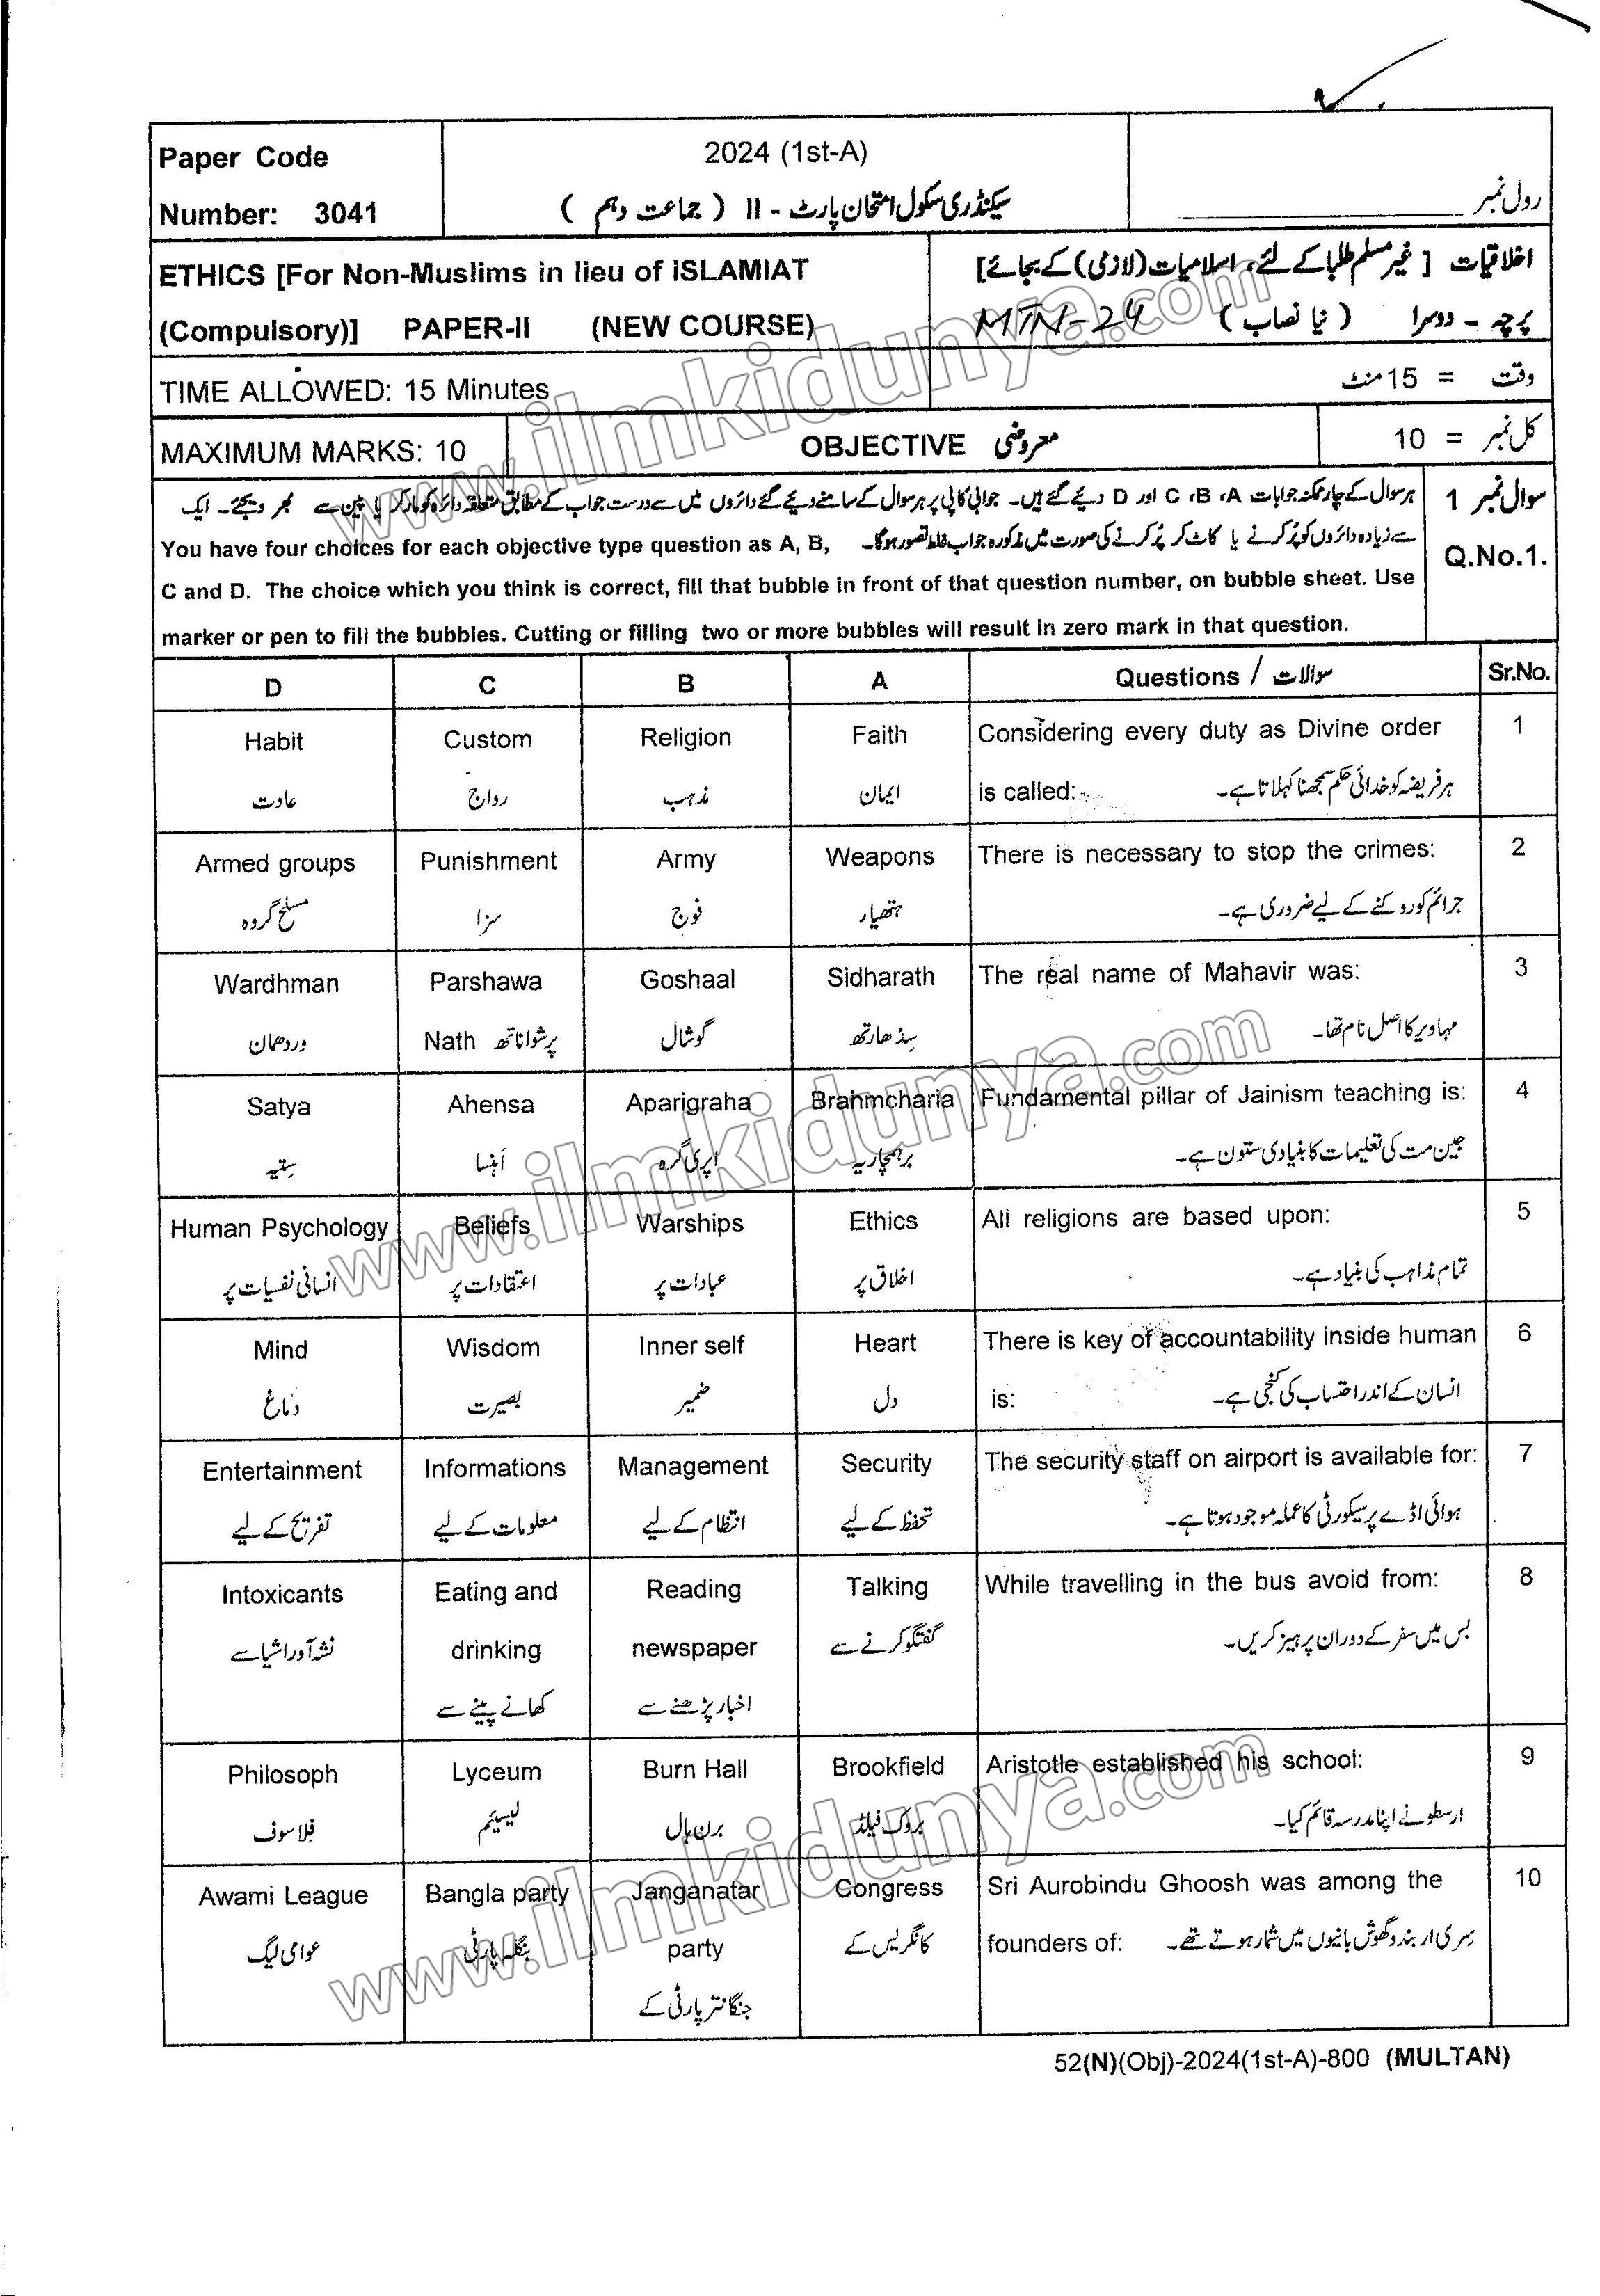 Paper Code
Number: 3041
2024 (1st-A)
سیکنڈری سکول امتحان پارٹ - II ( جماعت دہم )
رول نمبر
ETHICS [For Non-Muslims in lieu of ISLAMIAT
(Compulsory)] PAPER-II (NEW COURSE)
اخلاقیات [ غیر مسلم طلبا کے لئے، اسلامیات (لازمی) کے بجائے]
پرچہ - دوسرا ( نیا نصاب ) MTN-24
TIME ALLOWED: 15 Minutes
وقت = 15 منٹ
MAXIMUM MARKS: 10
OBJECTIVE معروضی
کل نمبر = 10
سوال نمبر 1
Q.No.1.
ہر سوال کے چار ممکنہ جوابات A، B، C اور D دیئے گئے ہیں۔ جوابی کاپی پر ہر سوال کے سامنے دیئے گئے دائروں میں سے درست جواب کے مطابق متعلقہ دائرہ کو مارکر یا پین سے بھر دیجئے۔ ایک
سے زیادہ دائروں کو پُر کرنے یا کاٹ کر پُر کرنے کی صورت میں مذکورہ جواب غلط تصور ہوگا۔ You have four choices for each objective type question as A, B,
C and D. The choice which you think is correct, fill that bubble in front of that question number, on bubble sheet. Use
marker or pen to fill the bubbles. Cutting or filling two or more bubbles will result in zero mark in that question.
D C B A Questions / سوالات Sr.No.
Habit Custom Religion Faith Considering every duty as Divine order 1
عادت رواج مذہب ایمان is called: ہر فریضہ کو خدائی حکم سمجھنا کہلاتا ہے۔
Armed groups Punishment Army Weapons There is necessary to stop the crimes: 2
مسلح گروہ سزا فوج ہتھیار جرائم کو روکنے کے لیے ضروری ہے۔
Wardhman Parshawa Goshaal Sidharath The real name of Mahavir was: 3
وردھمان Nath پرشواناتھ گوشال سِدھارتھ مہاویر کا اصل نام تھا۔
Satya Ahensa Aparigraha Brahmcharia Fundamental pillar of Jainism teaching is: 4
سِتیہ اَہنسا اپری گرہ برہمچاریہ جین مت کی تعلیمات کا بنیادی ستون ہے۔
Human Psychology Beliefs Warships Ethics All religions are based upon: 5
انسانی نفسیات پر اعتقادات پر عبادات پر اخلاق پر تمام مذاہب کی بنیاد ہے۔
Mind Wisdom Inner self Heart There is key of accountability inside human 6
دماغ بصیرت ضمیر دل is: انسان کے اندر احتساب کی کنجی ہے۔
Entertainment Informations Management Security The security staff on airport is available for: 7
تفریح کے لیے معلومات کے لیے انتظام کے لیے تحفظ کے لیے ہوائی اڈے پر سیکورٹی کا عملہ موجود ہوتا ہے۔
Intoxicants Eating and Reading Talking While travelling in the bus avoid from: 8
نشہ آور اشیا سے drinking newspaper گفتگو کرنے سے بس میں سفر کے دوران پرہیز کریں۔
کھانے پینے سے اخبار پڑھنے سے
Philosoph Lyceum Burn Hall Brookfield Aristotle established his school: 9
فِلاسوف لیسیئم برن ہال بروک فیلڈ ارسطو نے اپنا مدرسہ قائم کیا۔
Awami League Bangla party Janganatar Congress Sri Aurobindu Ghoosh was among the 10
عوامی لیگ بنگلہ پارٹی party کانگریس کے founders of: سِری اربندو گھوش بانیوں میں شمار ہوتے تھے۔
جنگانتر پارٹی کے
52(N)(Obj)-2024(1st-A)-800 (MULTAN)
www.ilmkidunya.com
www.ilmkidunya.com
www.ilmkidunya.com